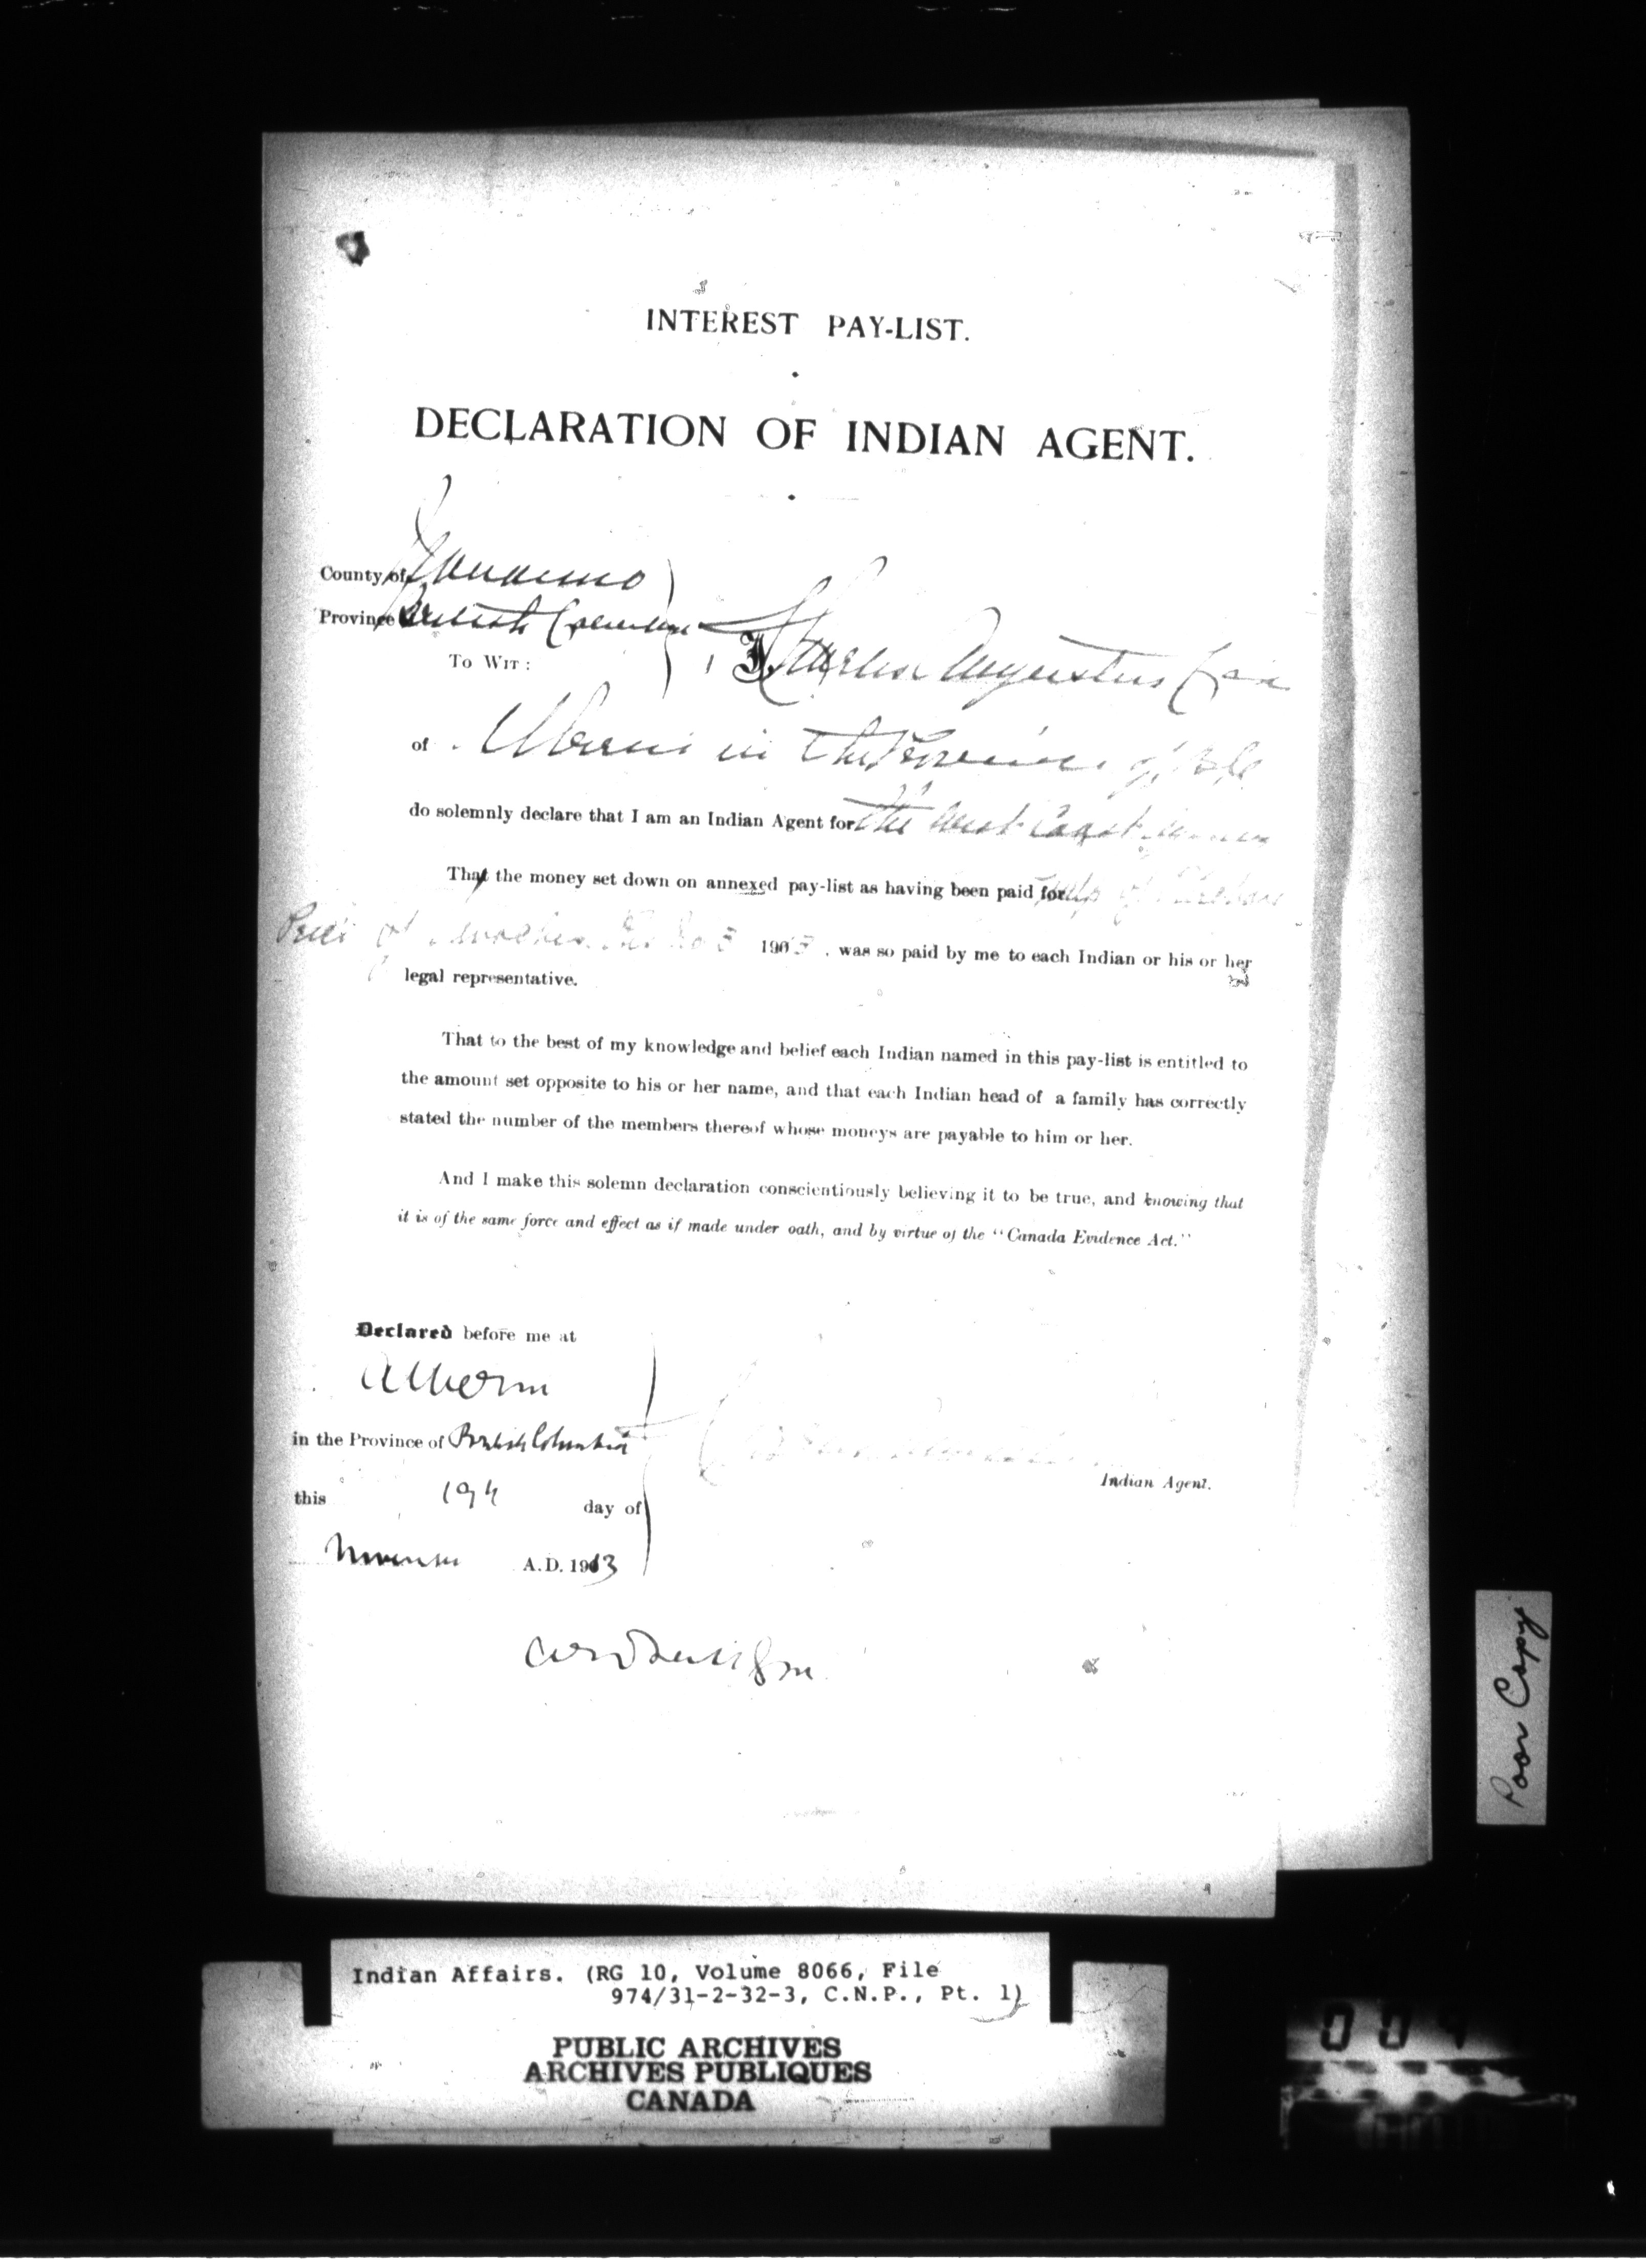 INTEREST PAY-LIST.
DECLARATION OF INDIAN AGENT.
County of Nanaimo
Province British Columbia
To Wit:
I, Charles Augustus Cox
of Alberni in the Province of B.C.
do solemnly declare that I am an Indian Agent for the West Coast
That the money set down on annexed pay-list as having been paid for
190 , was so paid by me to each Indian or his or her
legal representative.
That to the best of my knowledge and belief each Indian named in this pay-list is entitled to
the amount set opposite to his or her name, and that each Indian head of a family has correctly
stated the number of the members thereof whose moneys are payable to him or her.
And I make this solemn declaration conscientiously believing it to be true, and knowing that
it is of the same force and effect as if made under oath, and by virtue of the "Canada Evidence Act."
Declared before me at
Alberni
in the Province of British Columbia
Indian Agent.
this 19th day of
November A.D. 1913
Poor Copy
Indian Affairs. (RG 10, Volume 8066, File
974/31-2-32-3, C.N.P., Pt. 1)
PUBLIC ARCHIVES
ARCHIVES PUBLIQUES
CANADA